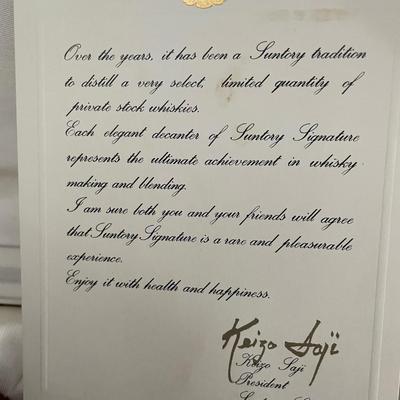 Over the years, it has been a Suntory tradition
to distill a very select, limited quantity of
private stock whiskies.
Each elegant decanter of Suntory Signature
represents the ultimate achievement in whisky-
making and blending.
I am sure both you and your friends will agree
that Suntory Signature is a rare and pleasurable
experience.
Enjoy it with health and happiness.
Keizo Saji
Keizo Saji
President